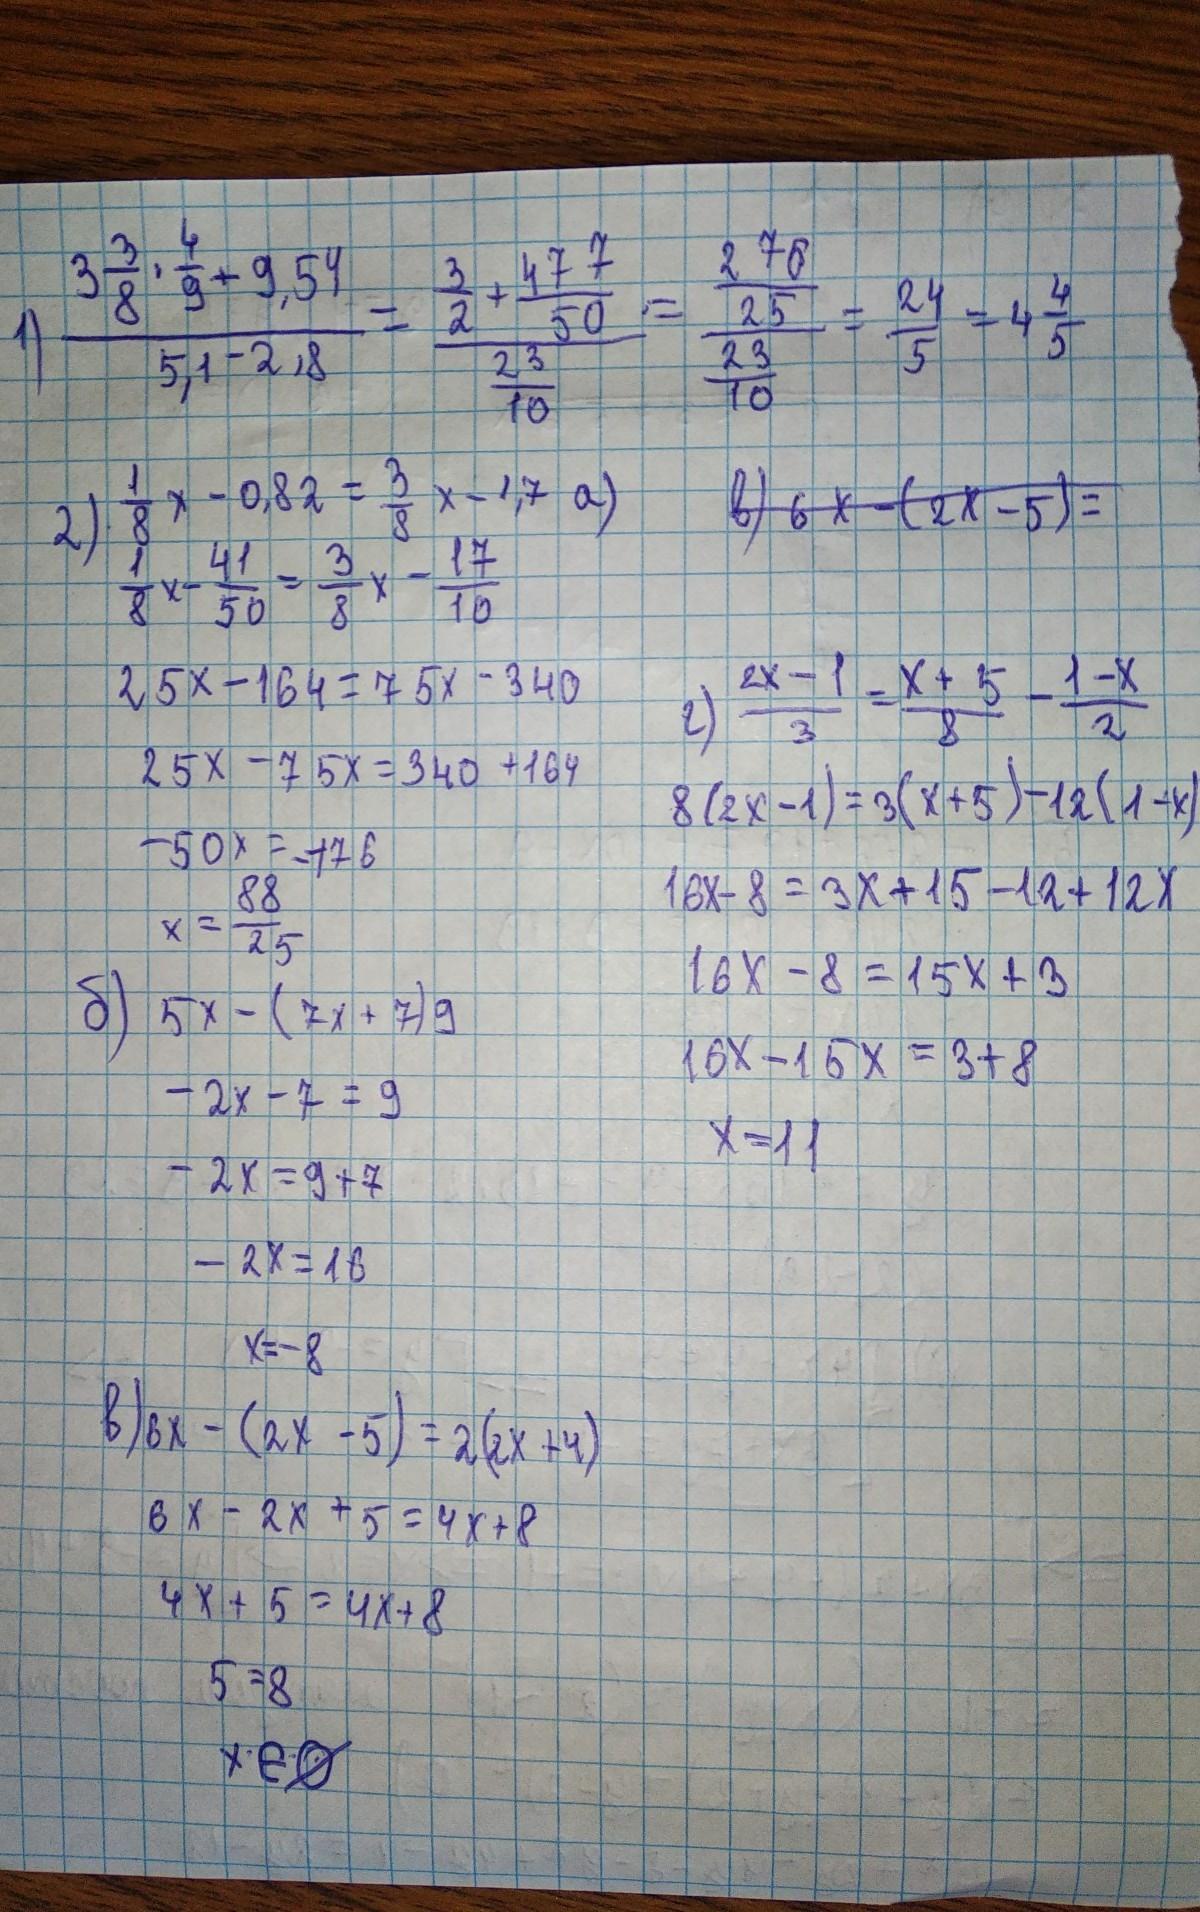 1) (3 3/8 · 4/9 + 9,54)/(5,1 - 2,8) = (3/2 + 477/50)/(23/10) = (276/25)/(23/10) = 24/5 = 4 4/5
2) 1/8 x - 0,82 = 3/8 x - 1,7 а)
1/8 x - 41/50 = 3/8 x - 17/10
25x - 164 = 75x - 340
25x - 75x = 340 + 164
-50x = -176
x = 88/25
б) 5x - (7x + 7) 9
-2x - 7 = 9
-2x = 9 + 7
-2x = 16
x = -8
в) 6x - (2x - 5) = 2(2x + 4)
6x - 2x + 5 = 4x + 8
4x + 5 = 4x + 8
5 = 8
x ∈ ∅
в) 6x - (2x - 5) =
г) (2x - 1)/3 = (x + 5)/8 - (1 - x)/2
8(2x - 1) = 3(x + 5) - 12(1 - x)
16x - 8 = 3x + 15 - 12 + 12x
16x - 8 = 15x + 3
16x - 15x = 3 + 8
x = 11